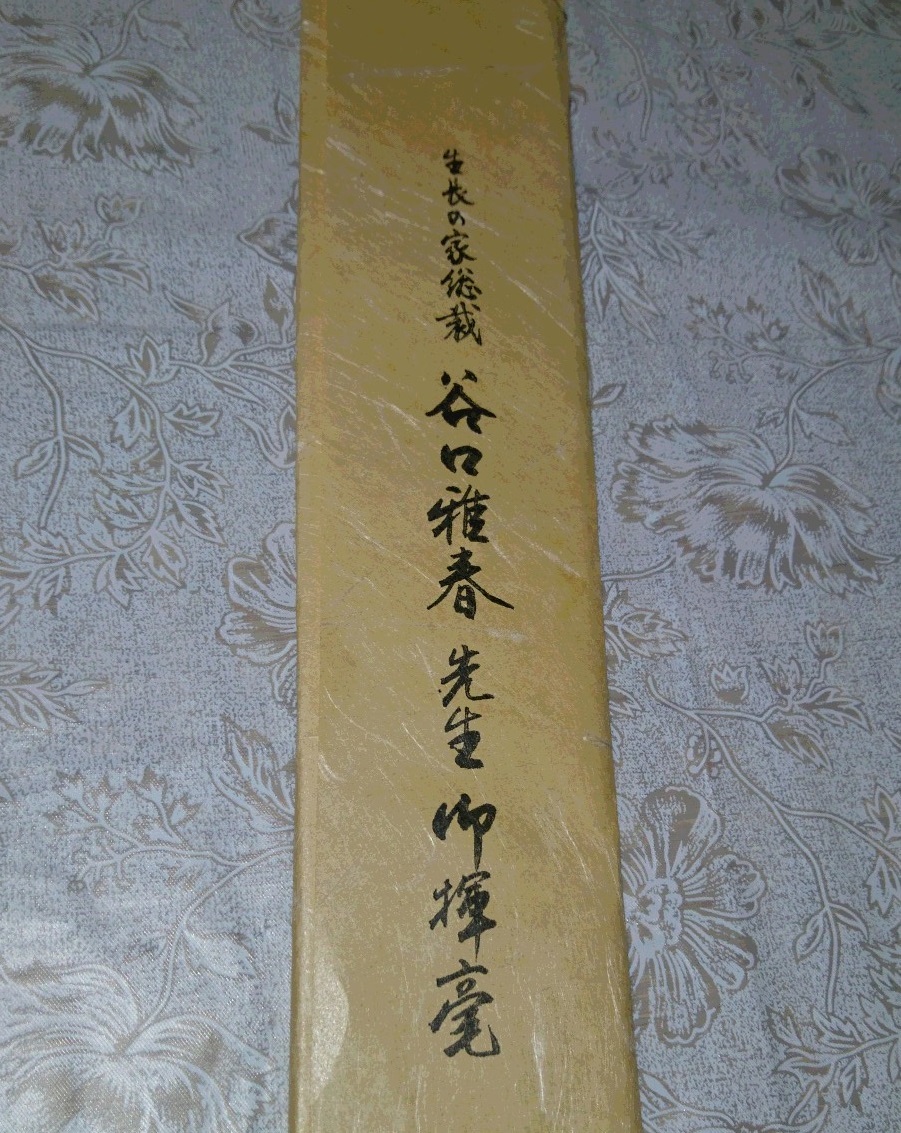 生長の家総裁 谷口雅春 先生 御揮毫